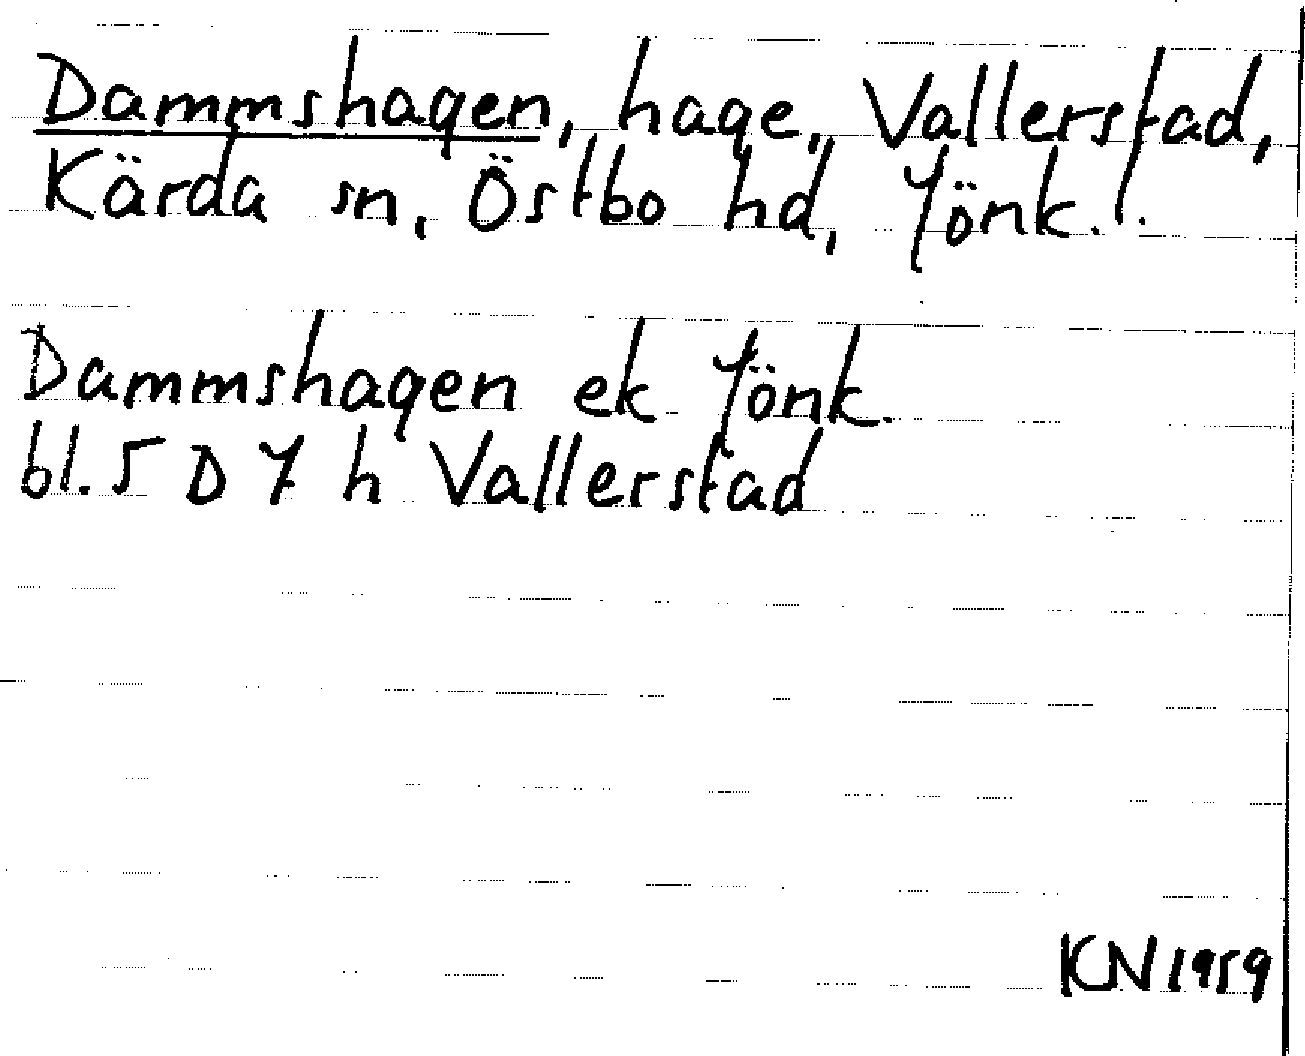 Dammshagen, hage, Vallerstad,
Kärda sn, Östbo hd, Jönk. l.
Dammshagen ek Jönk.
bl. 5 D 7 h Vallerstad
KN 1959